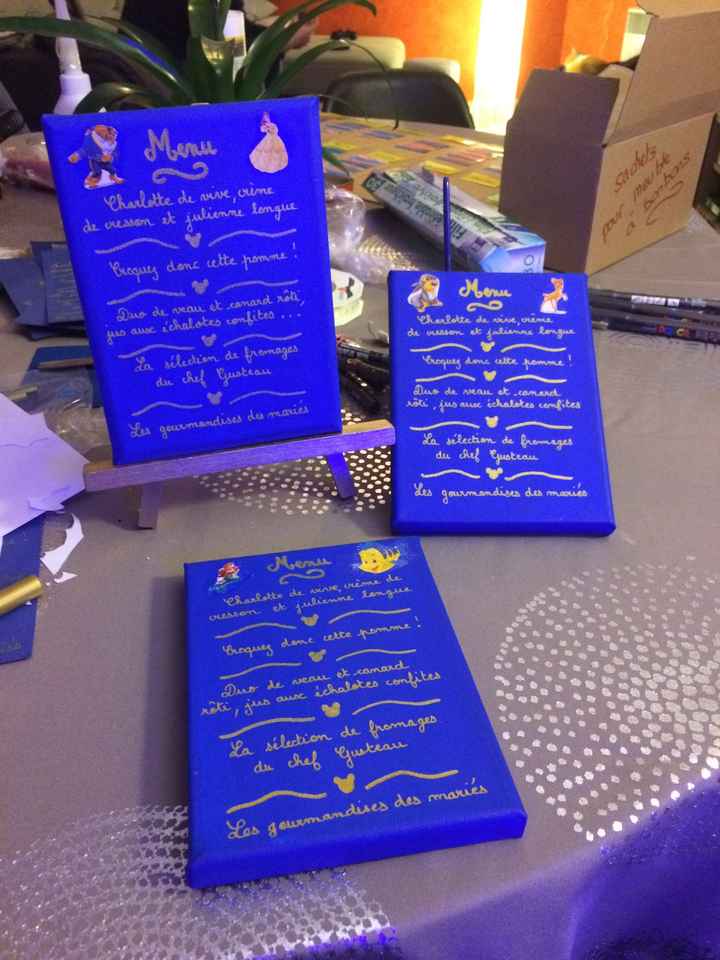 Menu
Charlotte de vive, crème
de cresson et julienne longue
Croquez donc cette pomme !
Duo de veau et canard rôti,
jus aux échalotes confites ...
La sélection de fromages
du chef Gusteau
Les gourmandises des mariés
Menu
Charlotte de vive, crème
de cresson et julienne longue
Croquez donc cette pomme !
Duo de veau et canard
rôti, jus aux échalotes confites
La sélection de fromages
du chef Gusteau
Les gourmandises des mariés
Menu
Charlotte de vive, crème de
cresson et julienne longue
Croquez donc cette pomme !
Duo de veau et canard
rôti, jus aux échalotes confites
La sélection de fromages
du chef Gusteau
Les gourmandises des mariés
Sachets
pour meuble
à bonbons